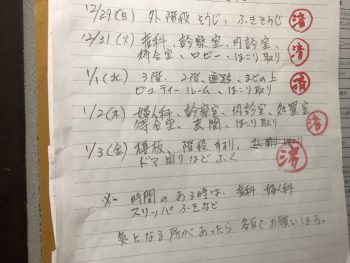 12/29(日) 外階段そうじ、ふきそうじ 済
12/31(火) 歯科、診察室、内診室、
待合室、ロビー、ほこり取り 済
1/1(水) 3階、2階、通路、まどの上
ビューティールーム、ほこり取り 済
1/2(木) 婦人科、診察室、内診室、処置室
待合室、玄関、ほこり取り 済
1/3(金) 階段手すり、
ドア周りなどふく 済
※ 時間のある時は、歯科 婦人科
スリッパふきなど
気になる所があったら各自でお願いします。